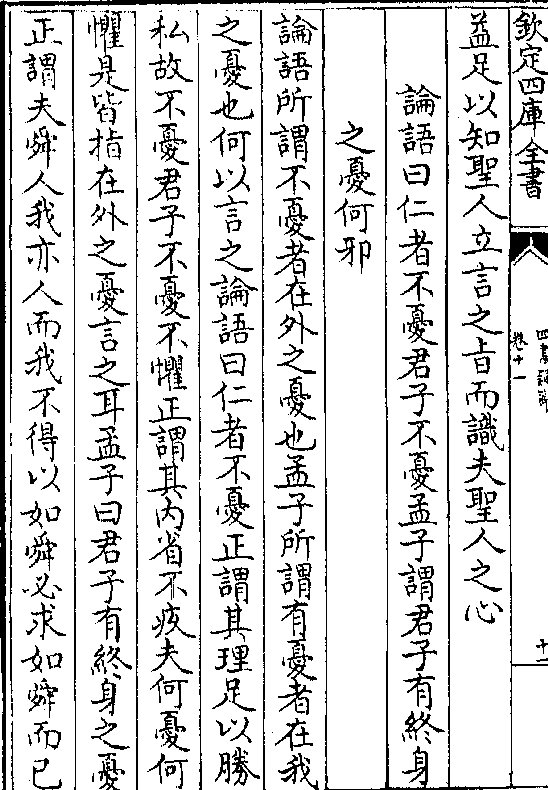 欽定四庫全書
四書疑節
卷十一
十一
益足以知聖人立言之旨而識夫聖人之心
論語曰仁者不憂君子不憂孟子謂君子有終身
之憂何邪
論語所謂不憂者在外之憂也孟子所謂有憂者在我
之憂也何以言之論語曰仁者不憂正謂其理足以勝
私故不憂君子不憂不懼正謂其内省不疚夫何憂何
懼是皆指在外之憂言之耳孟子曰君子有終身之憂
正謂夫舜人我亦人而我不得以如舜必求如舜而已